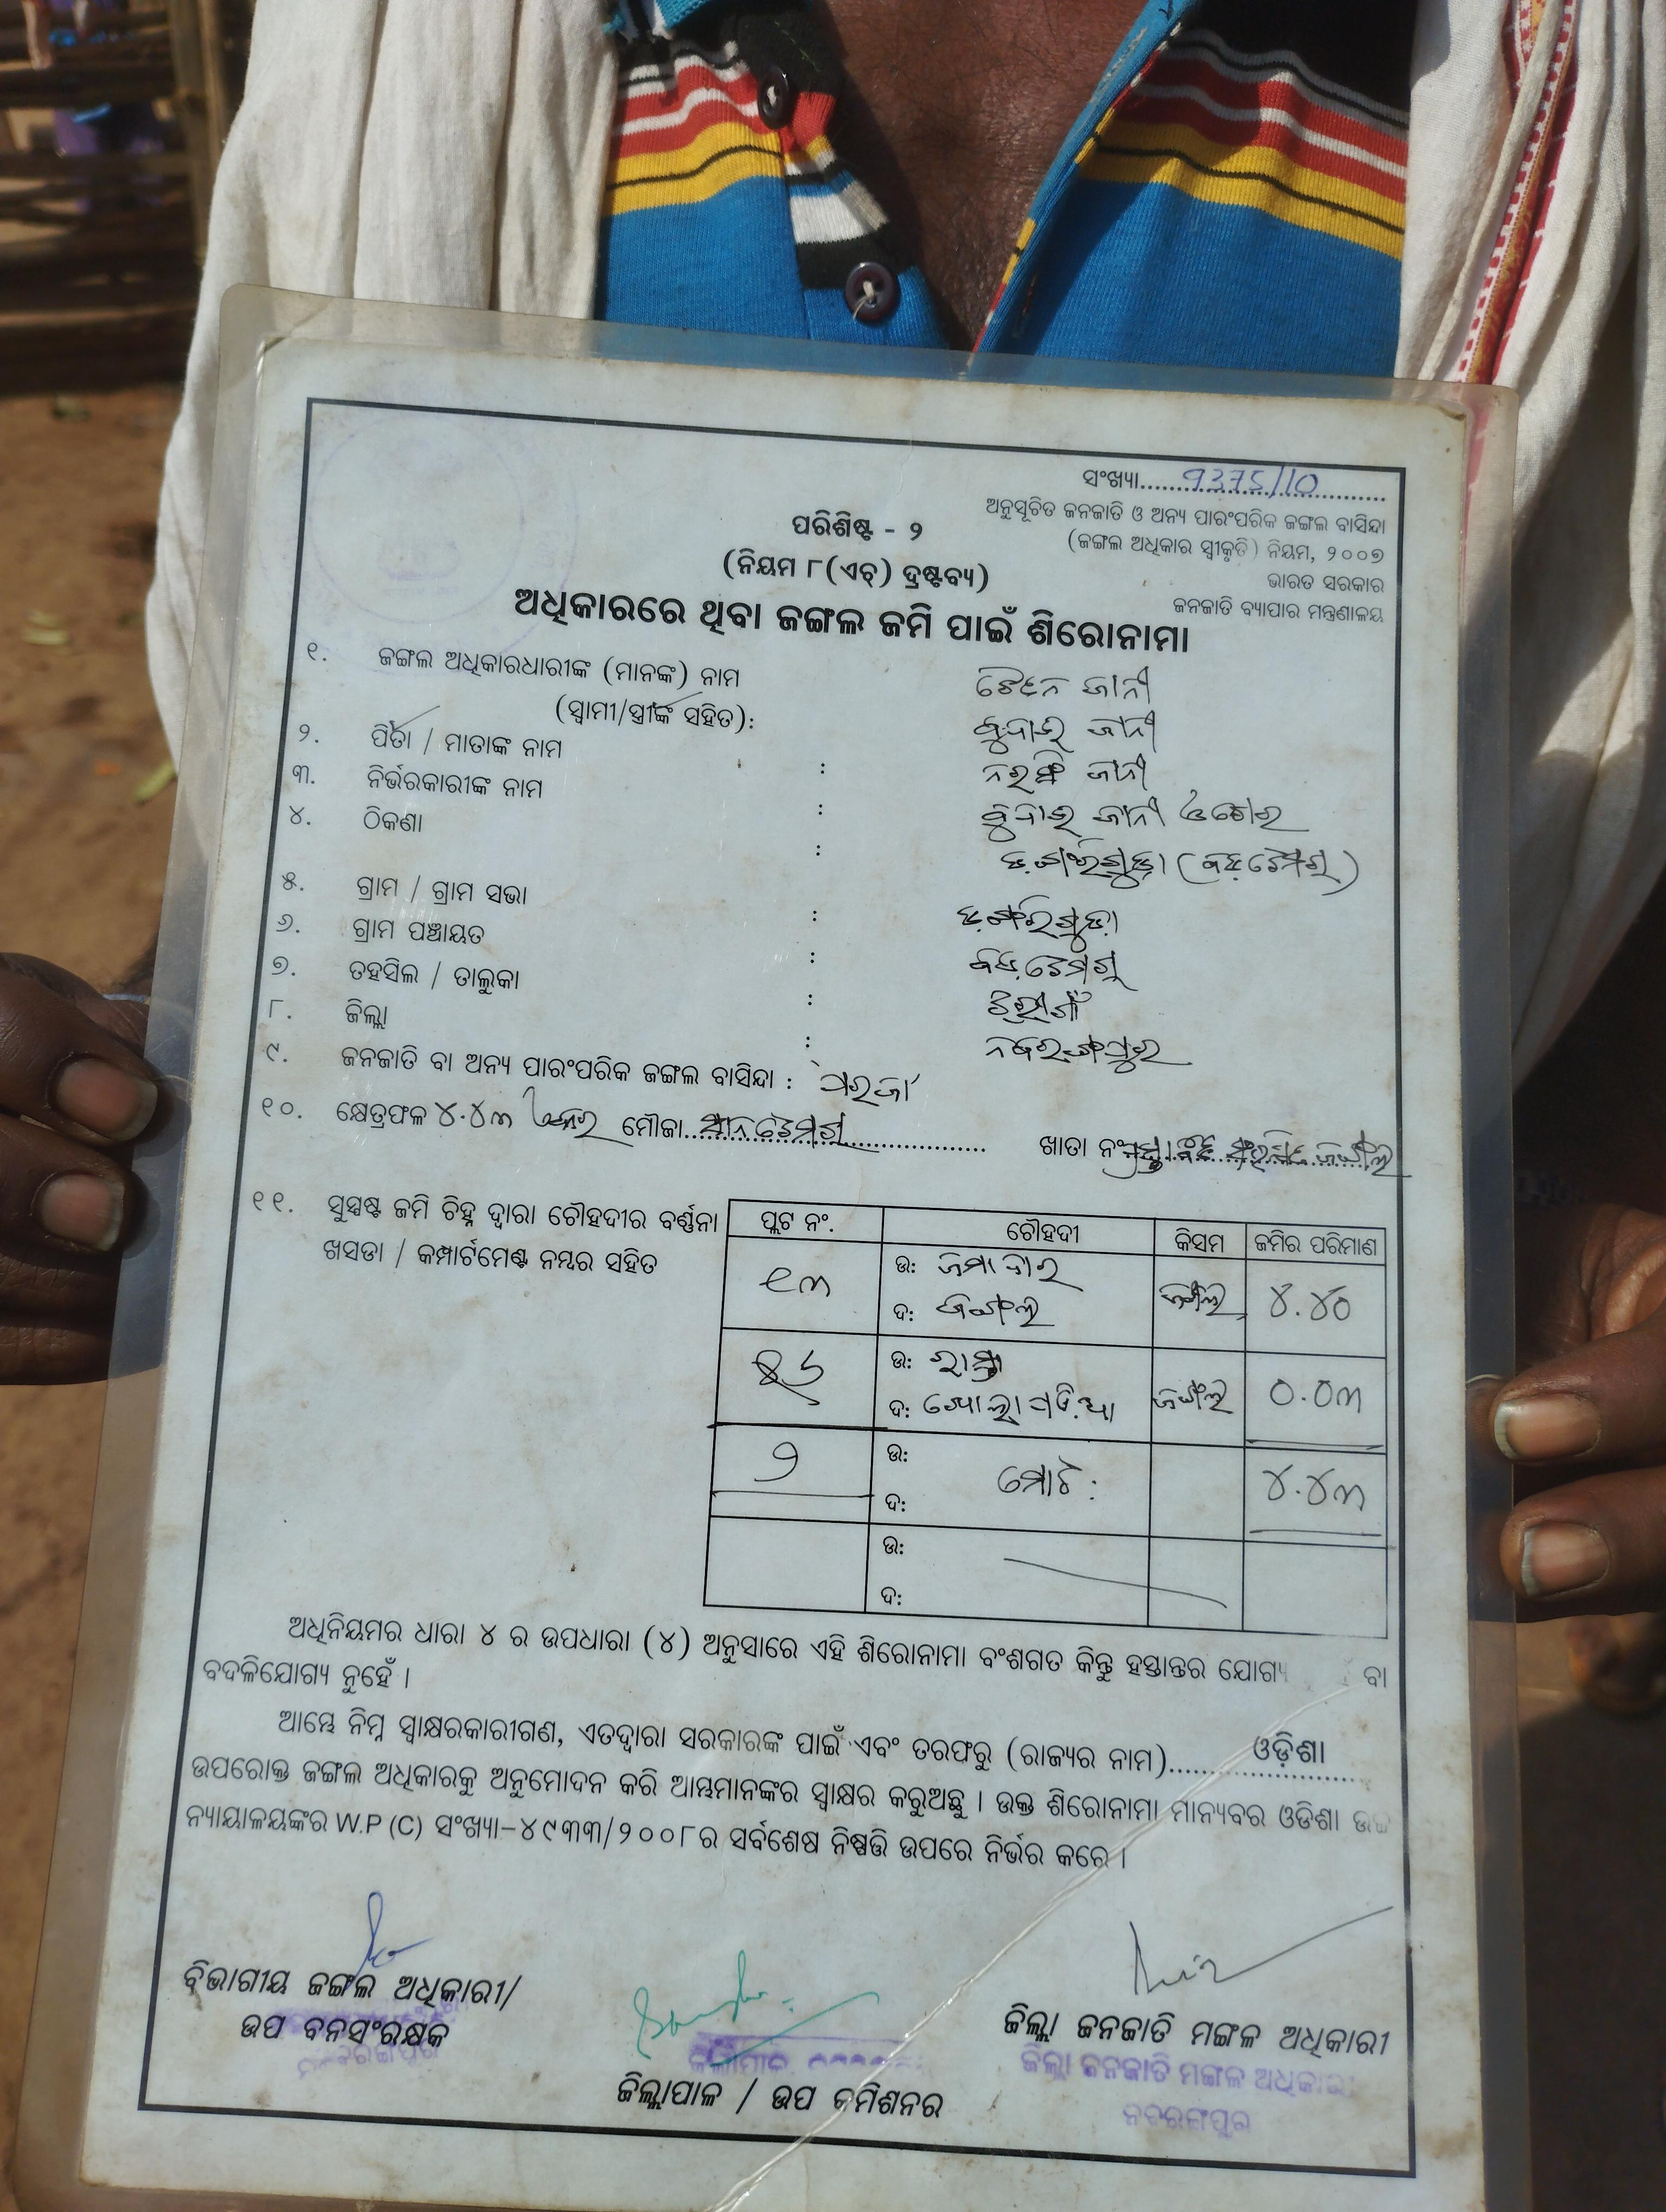 ସଂଖ୍ୟା.......9375/10
ଅନୁସୂଚିତ ଜନଜାତି ଓ ଅନ୍ୟ ପାରଂପରିକ ଜଙ୍ଗଲ ବାସିନ୍ଦା
(ଜଙ୍ଗଲ ଅଧିକାର ସ୍ୱୀକୃତି) ନିୟମ, ୨୦୦୭
ଭାରତ ସରକାର
ଜନଜାତି ବ୍ୟାପାର ମନ୍ତ୍ରଣାଳୟ
ପରିଶିଷ୍ଟ - ୨
(ନିୟମ ୮(ଏଚ୍) ଦ୍ରଷ୍ଟବ୍ୟ)
ଅଧିକାରରେ ଥିବା ଜଙ୍ଗଲ ଜମି ପାଇଁ ଶିରୋନାମା
୧. ଜଙ୍ଗଲ ଅଧିକାରଧାରୀଙ୍କ (ମାନଙ୍କ) ନାମ ଜାନୀ
(ସ୍ୱାମୀ/ସ୍ତ୍ରୀଙ୍କ ସହିତ):
୨. ପିତା / ମାତାଙ୍କ ନାମ : ବୁଦାଇ ଜାନୀ
୩. ନିର୍ଭରକାରୀଙ୍କ ନାମ : ନରସିଂ ଜାନୀ
୪. ଠିକଣା : ବୁଦାଇ ଜାନୀ
୫. ଗ୍ରାମ / ଗ୍ରାମ ସଭା :
୬. ଗ୍ରାମ ପଞ୍ଚାୟତ :
୭. ତହସିଲ / ତାଲୁକା :
୮. ଜିଲ୍ଲା : ନବରଙ୍ଗପୁର
୯. ଜନଜାତି ବା ଅନ୍ୟ ପାରଂପରିକ ଜଙ୍ଗଲ ବାସିନ୍ଦା : ପରଜା
୧୦. କ୍ଷେତ୍ରଫଳ ୪.୪୩ ଏକର ମୌଜା....... ଖାତା ନଂ
୧୧. ସୁସ୍ପଷ୍ଟ ଜମି ଚିହ୍ନ ଦ୍ୱାରା ଚୌହଦୀର ବର୍ଣ୍ଣନା
ଖସଡା / କମ୍ପାର୍ଟମେଣ୍ଟ ନମ୍ବର ସହିତ
ପ୍ଲଟ ନଂ. ଚୌହଦୀ କିସମ ଜମିର ପରିମାଣ
୧୩ ଉ: ଜମାଦାର ଜଙ୍ଗଲ ୪.୪୦
ଦ: ଜଙ୍ଗଲ
ଉ: ରାସ୍ତା ଜଙ୍ଗଲ ୦.୦୩
ଦ:
୨ ଉ: ମୋଟ: ୪.୪୩
ଦ:
ଉ:
ଦ:
ଅଧିନିୟମର ଧାରା ୪ ର ଉପଧାରା (୪) ଅନୁସାରେ ଏହି ଶିରୋନାମା ବଂଶଗତ କିନ୍ତୁ ହସ୍ତାନ୍ତର ଯୋଗ୍ୟ ବା
ବଦଳିଯୋଗ୍ୟ ନୁହେଁ ।
ଆମ୍ଭେ ନିମ୍ନ ସ୍ୱାକ୍ଷରକାରୀଗଣ, ଏତଦ୍ୱାରା ସରକାରଙ୍କ ପାଇଁ ଏବଂ ତରଫରୁ (ରାଜ୍ୟର ନାମ).......ଓଡ଼ିଶା
ଉପରୋକ୍ତ ଜଙ୍ଗଲ ଅଧିକାରକୁ ଅନୁମୋଦନ କରି ଆମ୍ଭମାନଙ୍କର ସ୍ୱାକ୍ଷର କରୁଅଛୁ । ଉକ୍ତ ଶିରୋନାମା ମାନ୍ୟବର ଓଡିଶା ଉଚ୍ଚ
ନ୍ୟାୟାଳୟଙ୍କର W.P (C) ସଂଖ୍ୟା-୪୯୩୩/୨୦୦୮ର ସର୍ବଶେଷ ନିଷ୍ପତ୍ତି ଉପରେ ନିର୍ଭର କରେ ।
ବିଭାଗୀୟ ଜଙ୍ଗଲ ଅଧିକାରୀ/
ଉପ ବନସଂରକ୍ଷକ
ଜିଲ୍ଲାପାଳ / ଉପ କମିଶନର
ଜିଲ୍ଲା ଜନଜାତି ମଙ୍ଗଳ ଅଧିକାରୀ
ଜିଲ୍ଲା ଜନଜାତି ମଙ୍ଗଳ ଅଧିକାରୀ
ନବରଙ୍ଗପୁର